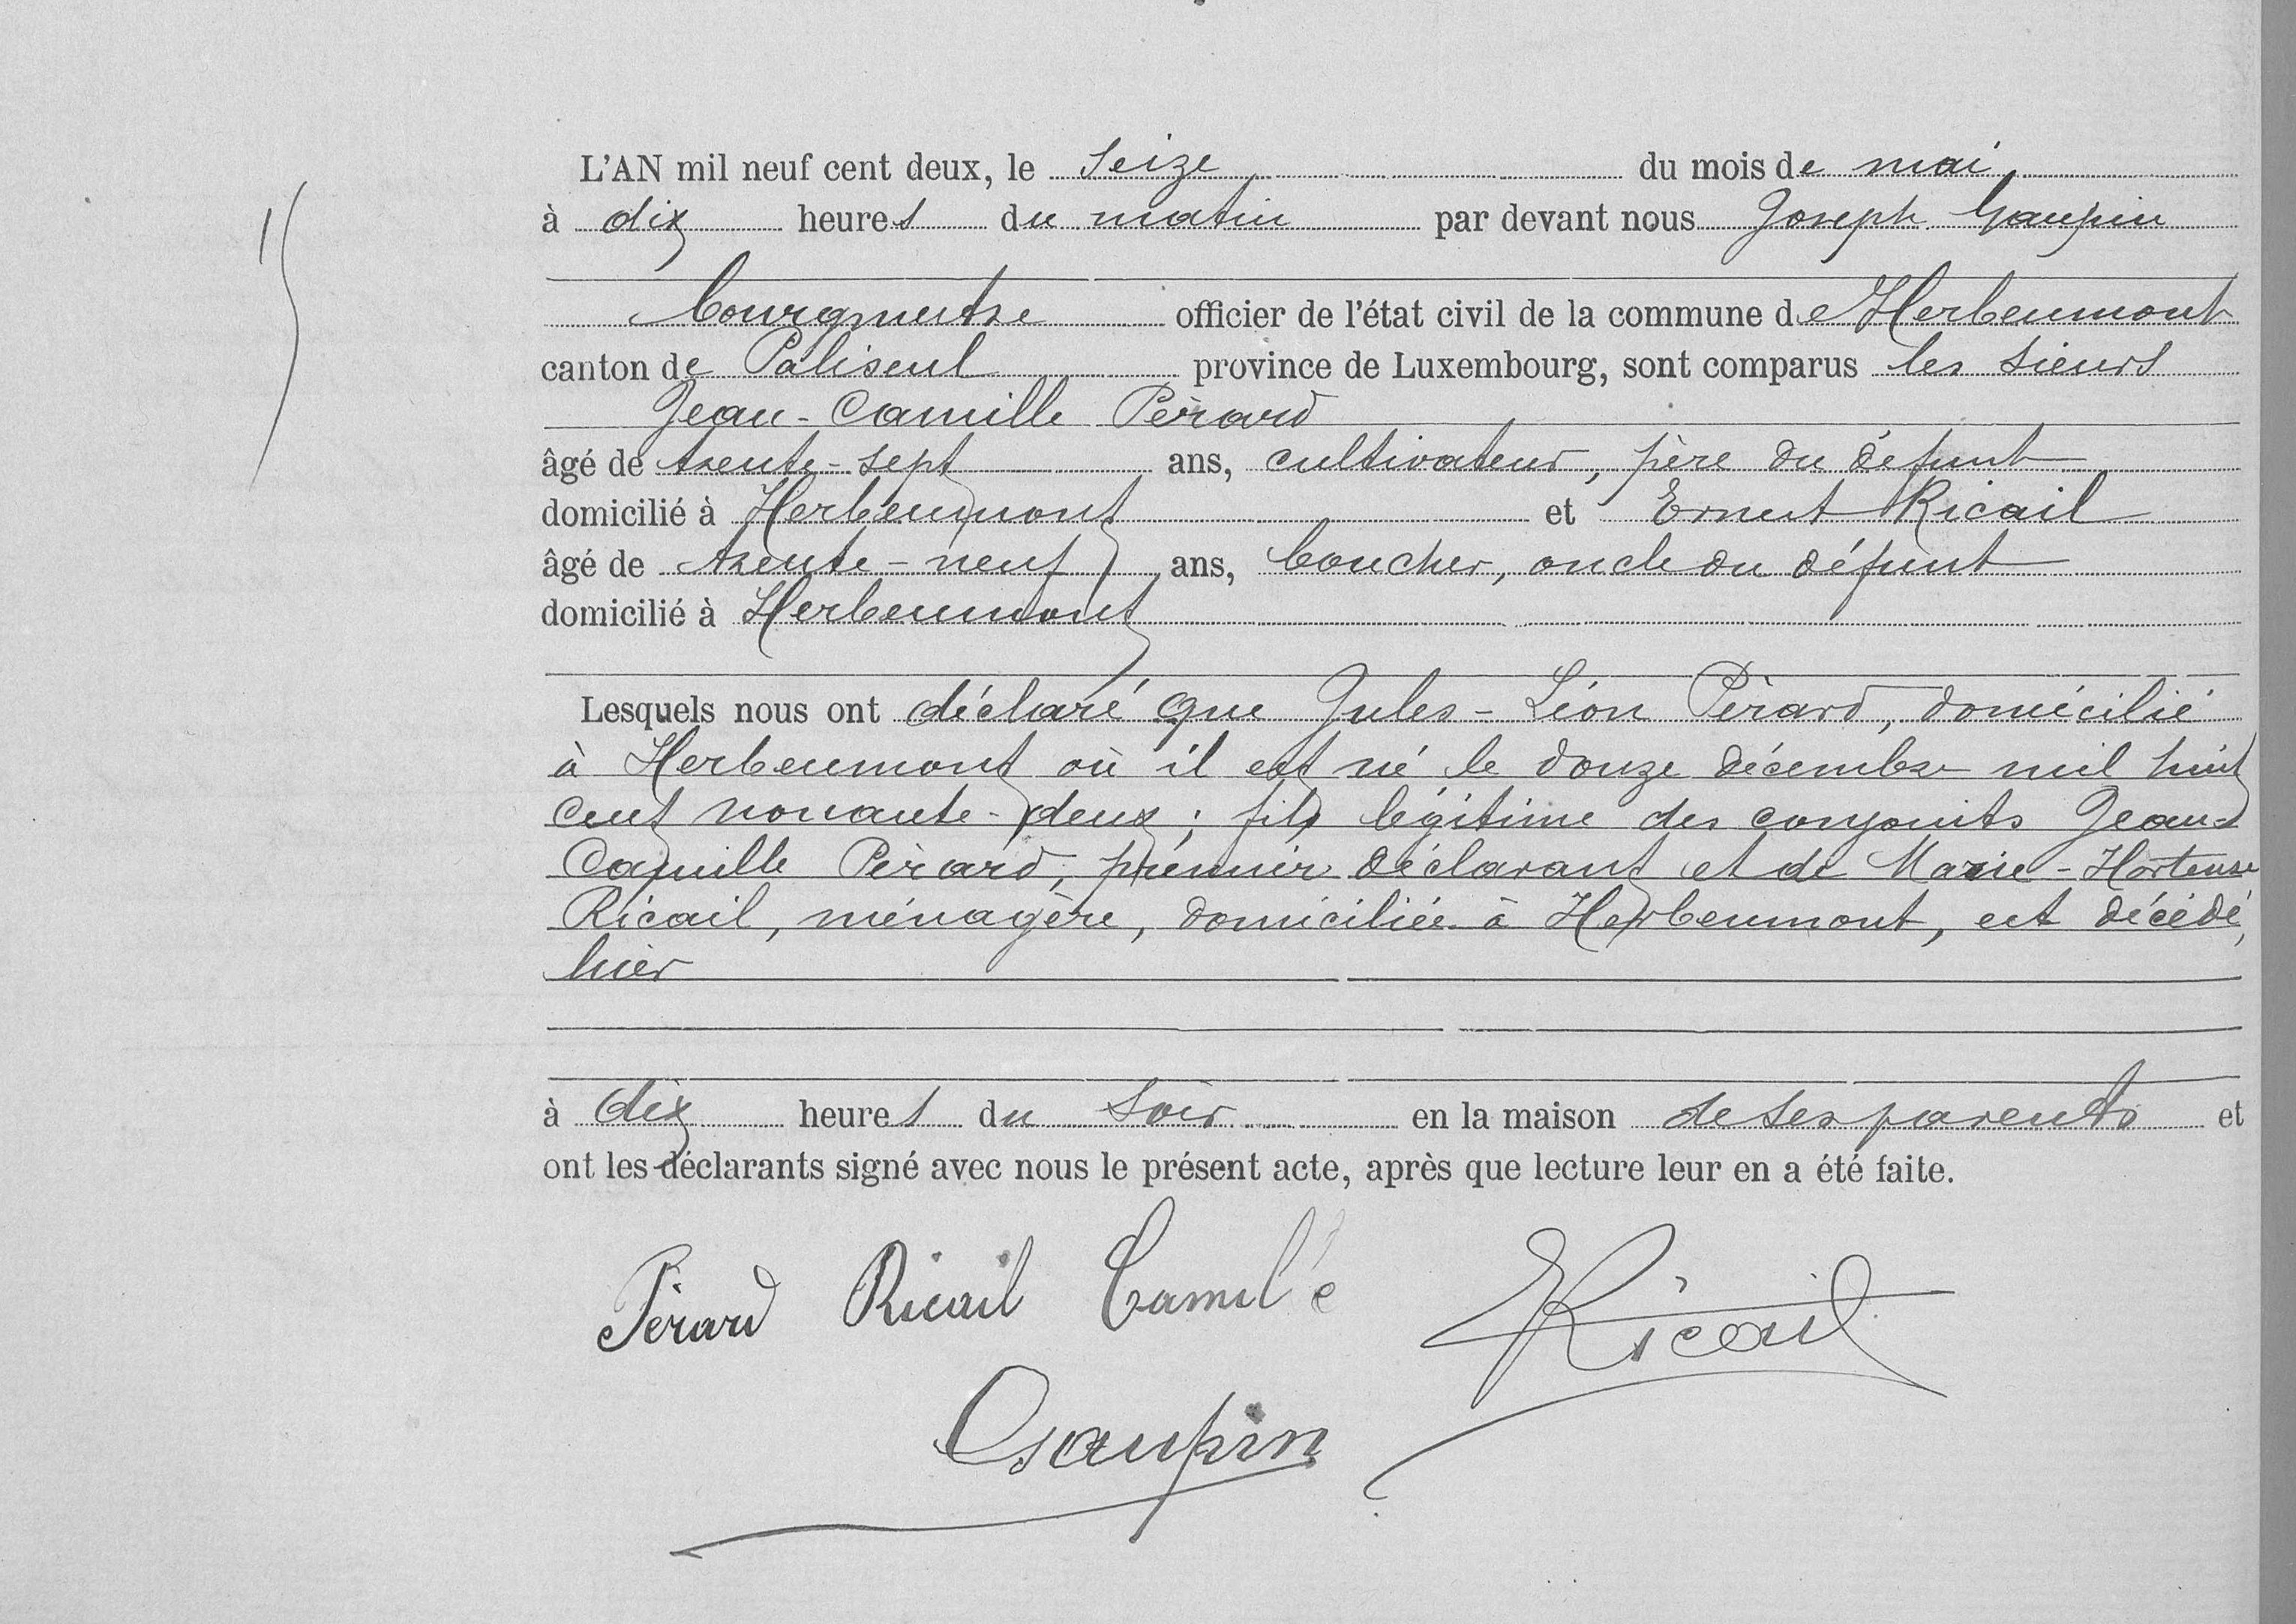 L'AN mil neuf cent deux, le seize du mois de mai,
à dix heures du matin par devant nous Joseph Gaupin
bourgmestre officier de l'état civil de la commune de Herbeumont
canton de Paliseul province de Luxembourg, sont comparus les sieurs
Jean-Camille Pérard
âgé de trente-sept ans, cultivateur, père du défunt
domicilié à Herbeumont et Ernest Ricail
âgé de trente-neuf ans, boucher, oncle du défunt
domicilié à Herbeumont
Lesquels nous ont déclaré que Jules-Léon Pérard, domicilié
à Herbeumont où il est né le douze décembre mil huit
cent nonante-deux; fils légitime des conjoints Jean-
Camille Pérard, premier déclarant et de Marie-Hortense
Ricail, ménagère, domiciliée à Herbeumont, est décédé,
hier
à dix heures du soir en la maison de ses parents et
ont les déclarants signé avec nous le présent acte, après que lecture leur en a été faite.
Pérard Ricail Camille ERicail
Gaupin